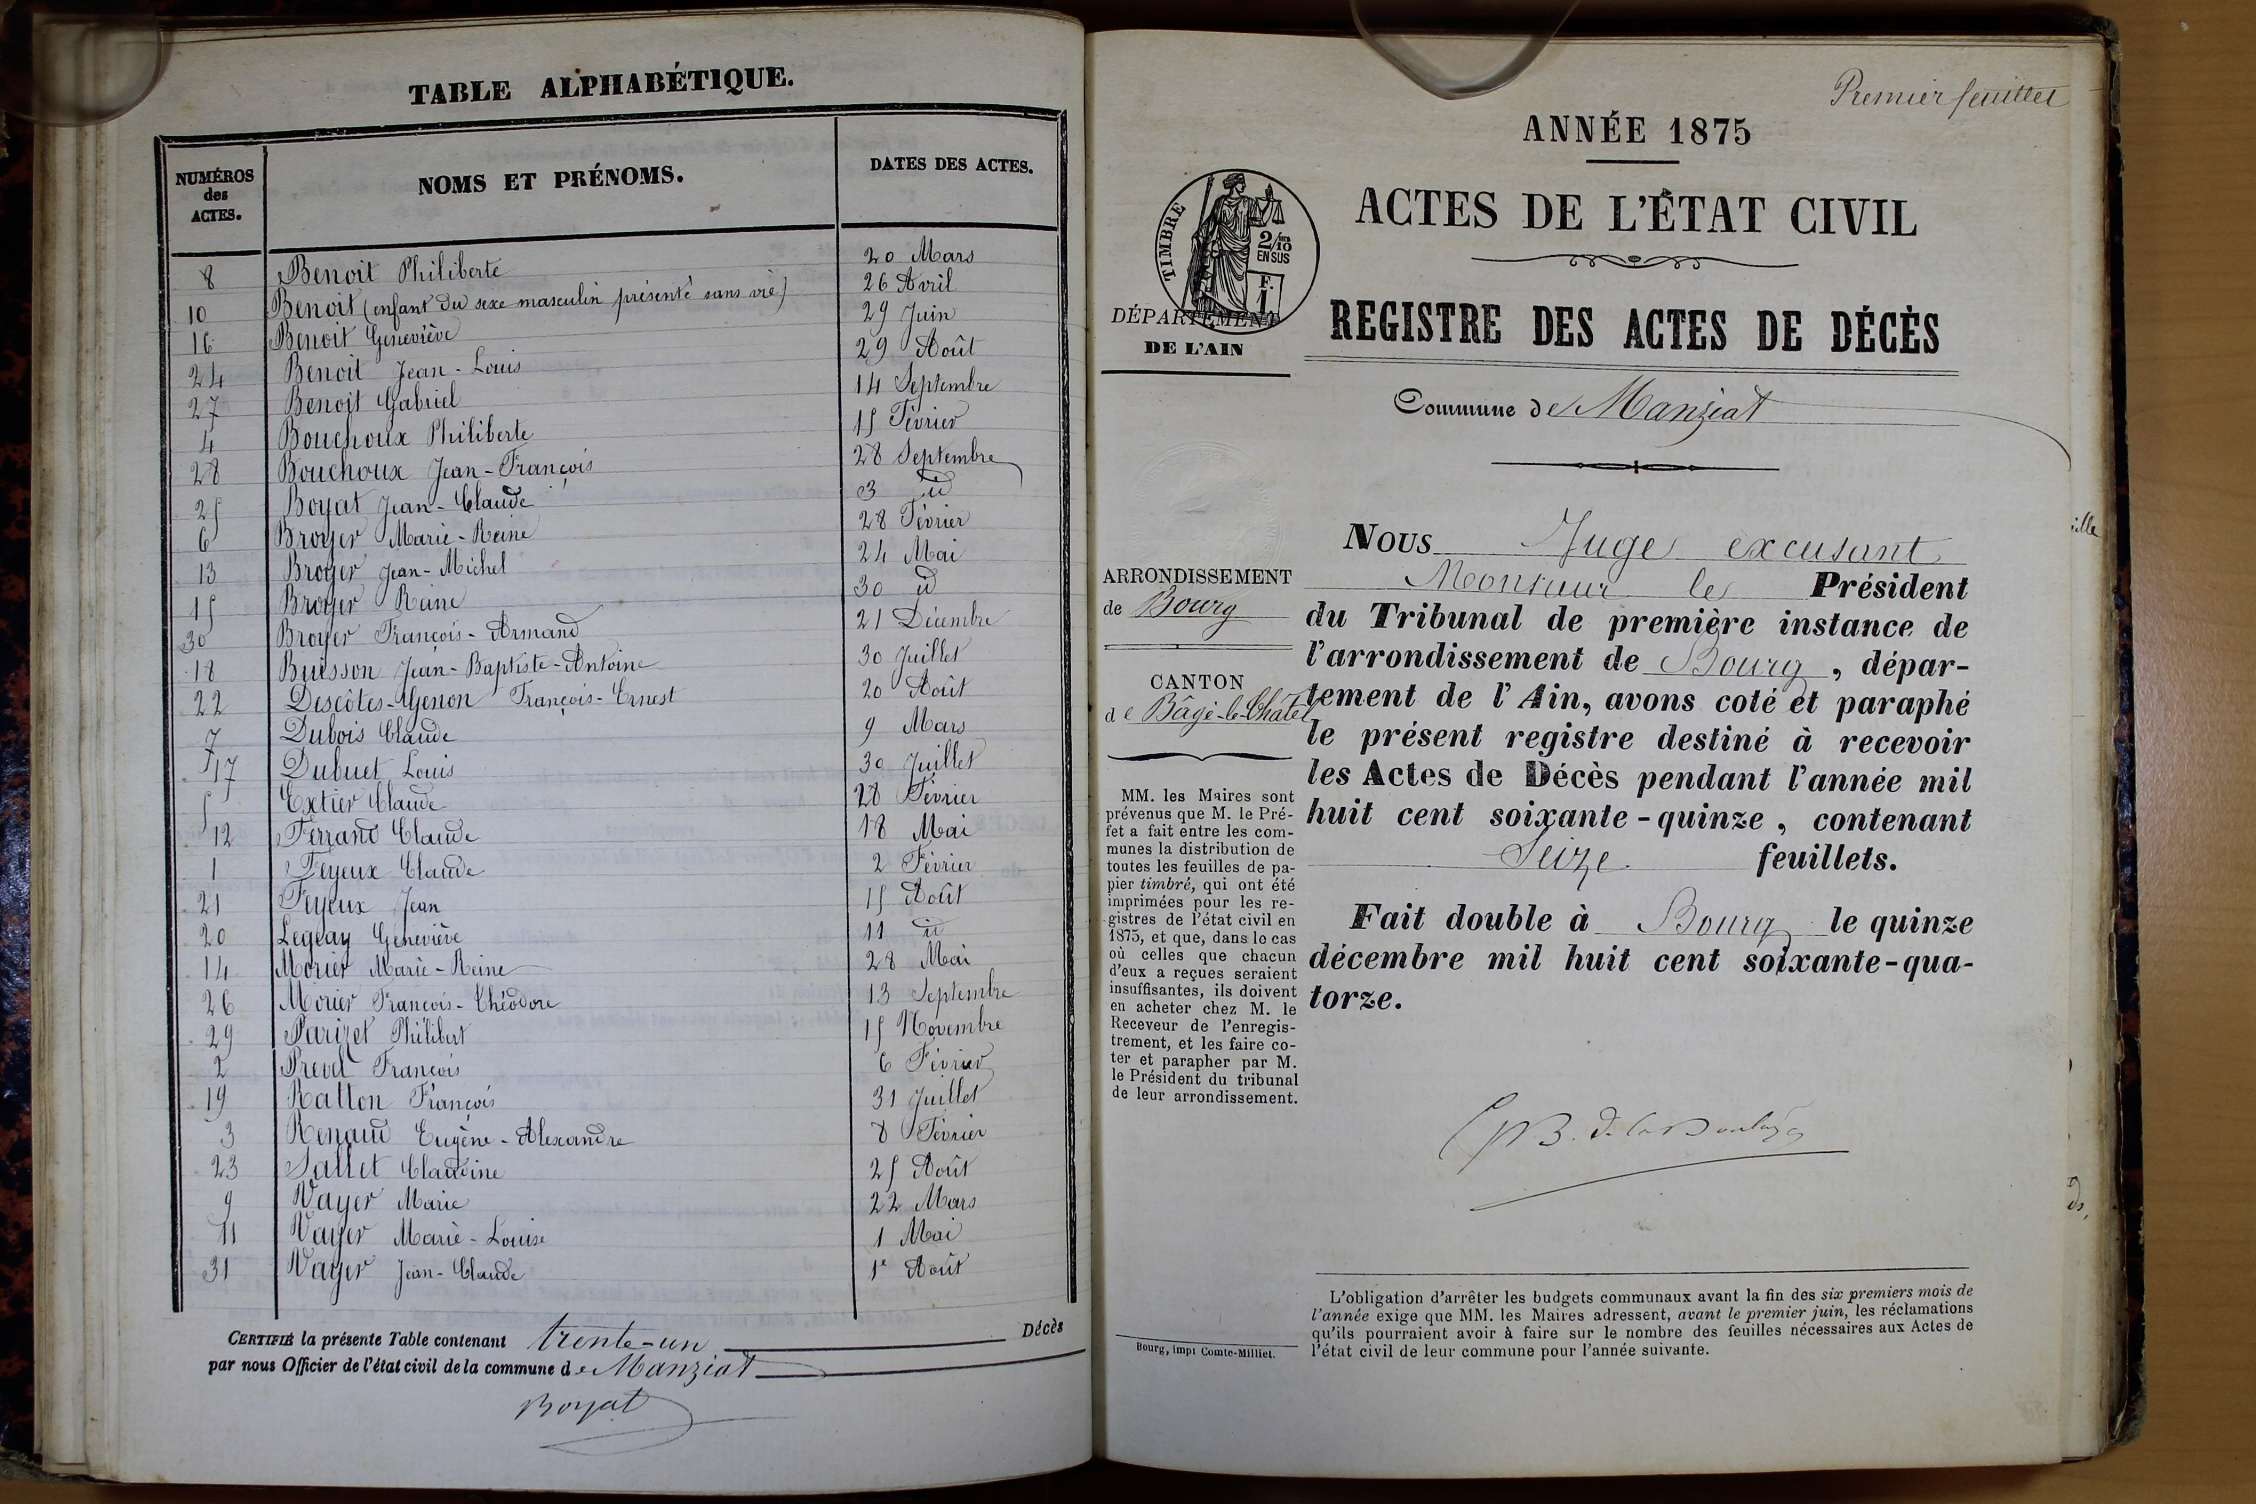 TABLE ALPHABÉTIQUE.
NUMÉROS des ACTES. NOMS ET PRÉNOMS. DATES DES ACTES.
8 Benoit Philiberte 20 Mars
10 Benoit (enfant du sexe masculin présenté sans vie) 26 Avril
16 Benoit Geneviève 29 Juin
24 Benoit Jean-Louis 29 Août
27 Benoit Gabriel 14 Septembre
4 Bouchoux Philiberte 15 Février
28 Bouchoux Jean-François 28 Septembre
25 Boyat Jean-Claude 3 id
6 Broyer Marie-Reine 28 Février
13 Broyer Jean-Michel 24 Mai
15 Broyer Reine 30 id
30 Broyer François-Armand 21 Décembre
18 Buisson Jean-Baptiste-Antoine 30 Juillet
22 Descôtes-Genon François-Ernest 20 Août
7 Dubois Claude 9 Mars
17 Dubuet Louis 30 Juillet
5 Extier Claude 28 Février
12 Ferrand Claude 18 Mai
1 Feyeux Claude 2 Février
21 Feyeux Jean 15 Août
20 Legeay Geneviève 11 id
14 Morier Marie-Reine 28 Mai
26 Morier François-Théodore 13 Septembre
29 Parizet Philibert 15 Novembre
2 Prevel François 6 Février
19 Ratton François 31 Juillet
3 Renaud Eugène-Alexandre 8 Février
23 Sallet Claudine 25 Août
9 Vayer Marie 22 Mars
11 Vayer Marie-Louise 1 Mai
31 Vayer Jean-Claude 1e Août
CERTIFIÉ la présente Table contenant trente-un Décès
par nous Officier de l'état civil de la commune de Manziat
Boyat
Premier feuillet
ANNÉE 1875
ACTES DE L'ÉTAT CIVIL
TIMBRE
2/10
EN SUS
F.
1
DÉPARTEMENT
DE L'AIN
REGISTRE DES ACTES DE DÉCÈS
Commune de Manziat
ARRONDISSEMENT
de Bourg
CANTON
de Bâgé-le-Châtel
MM. les Maires sont
prévenus que M. le Pré-
fet a fait entre les com-
munes la distribution de
toutes les feuilles de pa-
pier timbré, qui ont été
imprimées pour les re-
gistres de l'état civil en
1875, et que, dans le cas
où celles que chacun
d'eux a reçues seraient
insuffisantes, ils doivent
en acheter chez M. le
Receveur de l'enregis-
trement, et les faire co-
ter et parapher par M.
le Président du tribunal
de leur arrondissement.
Bourg, impr Comte-Milliet.
Nous Juge excusant
Monsieur le Président
du Tribunal de première instance de
l'arrondissement de Bourg, dépar-
tement de l'Ain, avons coté et paraphé
le présent registre destiné à recevoir
les Actes de Décès pendant l'année mil
huit cent soixante-quinze, contenant
Seize feuillets.
Fait double à Bourg le quinze
décembre mil huit cent soixante-qua-
torze.
L'obligation d'arrêter les budgets communaux avant la fin des six premiers mois de
l'année exige que MM. les Maires adressent, avant le premier juin, les réclamations
qu'ils pourraient avoir à faire sur le nombre des feuilles nécessaires aux Actes de
l'état civil de leur commune pour l'année suivante.